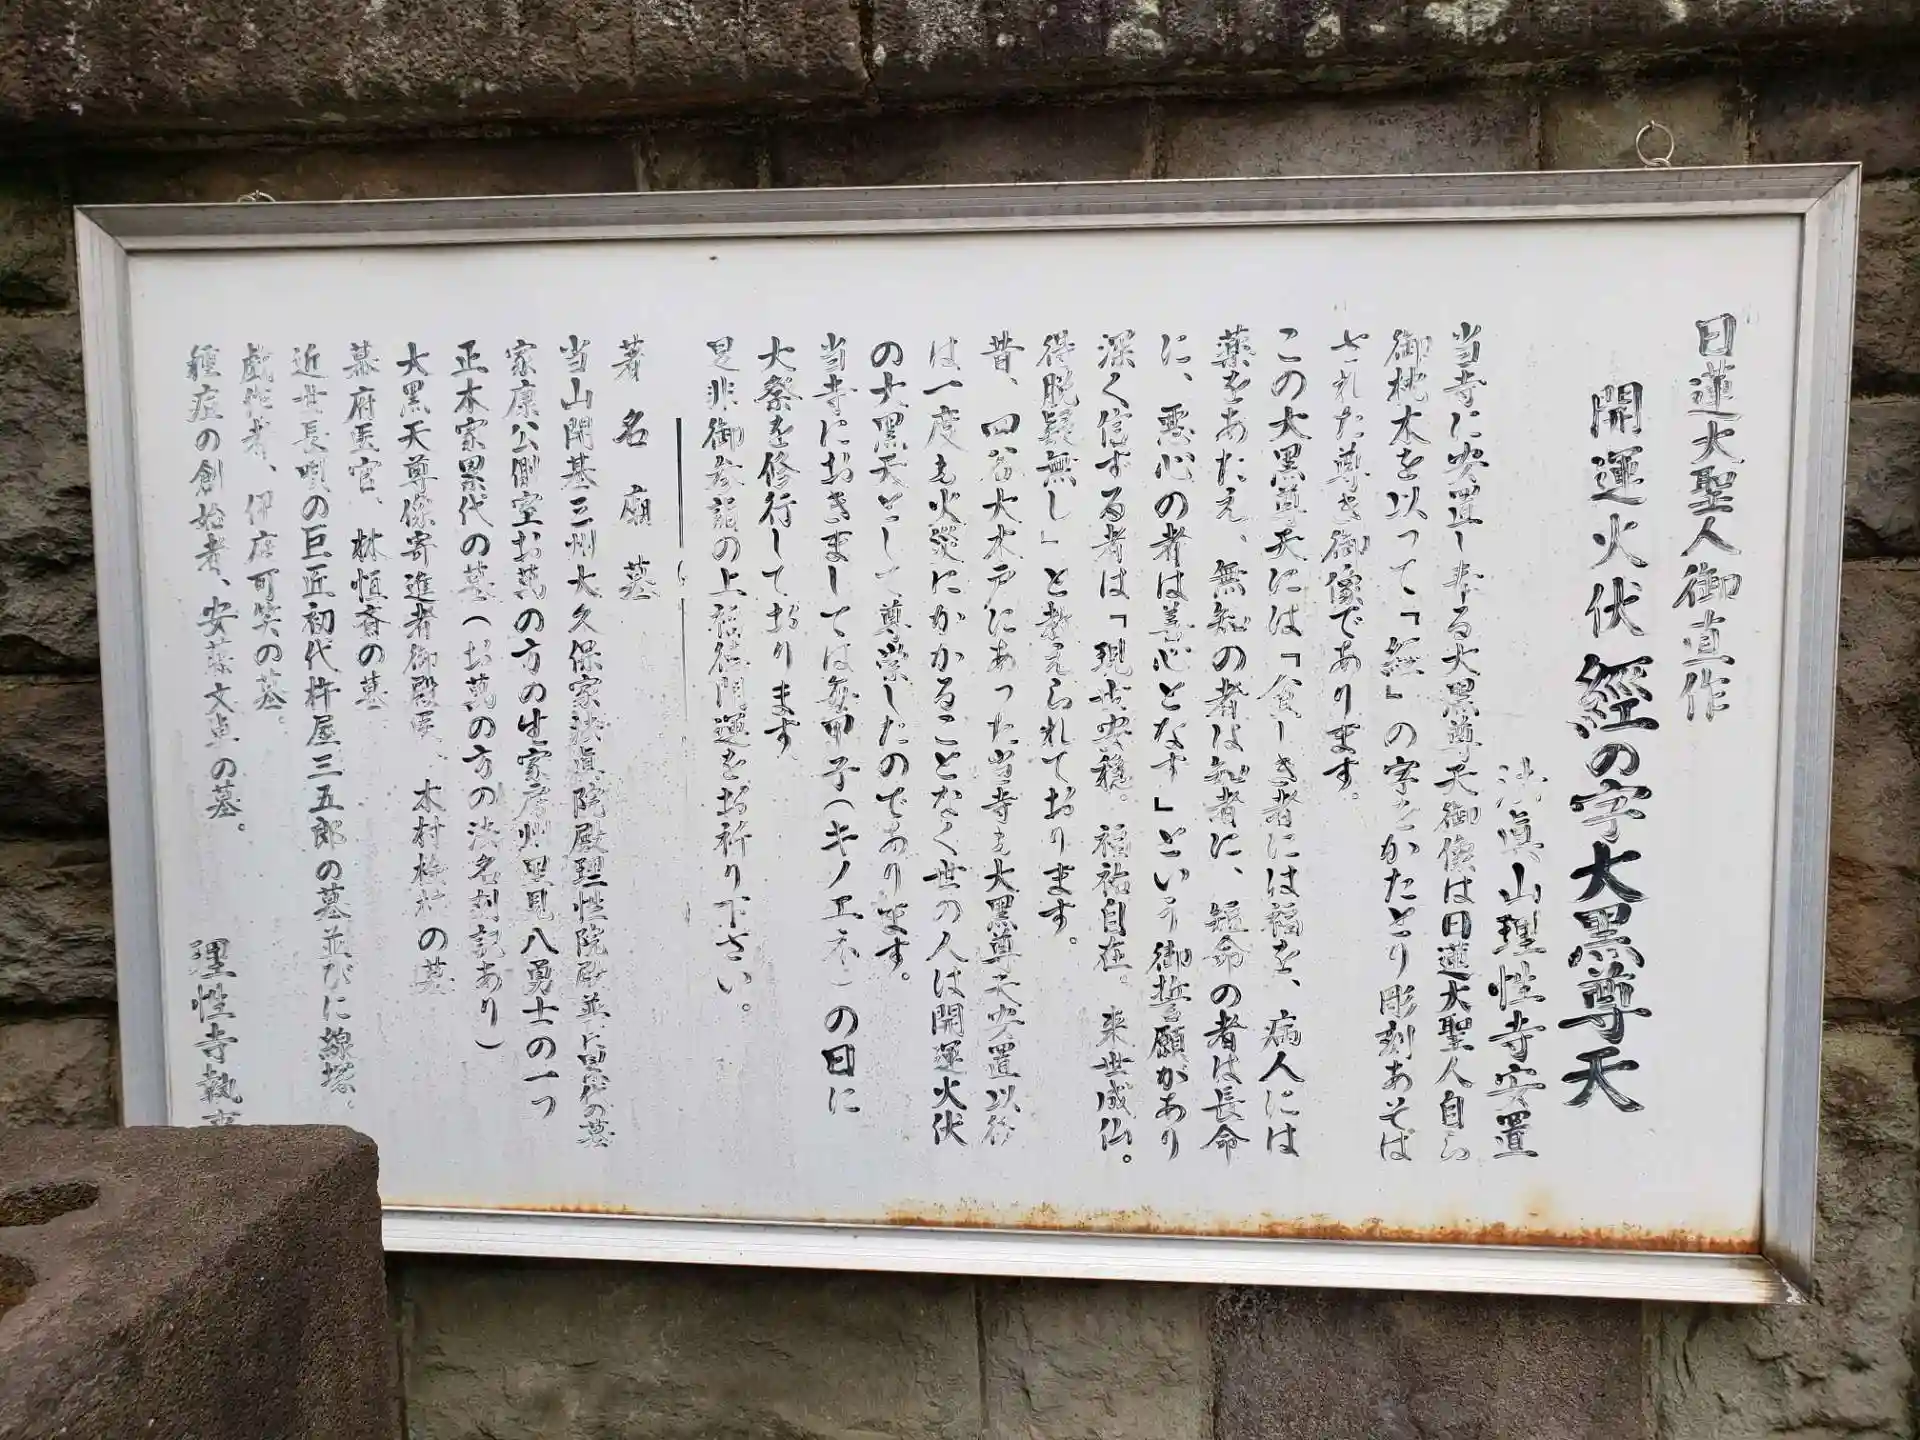 日蓮大聖人御直作
開運火伏 經の字大黒尊天
法眞山理性寺安置
当寺に安置し奉る大黒尊天御像は日蓮大聖人自ら
御枕木を以って「經」の字をかたどり彫刻あそば
された尊き御像であります。
この大黒尊天には「貧しき者には福を、病人には
薬をあたえ、無知の者は知者に、短命の者は長命
に、悪心の者は善心となす」という御誓願があり
深く信ずる者は「現世安穏。福祐自在。来世成仏。
得脱疑無し」と教えられております。
昔、四谷大木戸にあった当寺も大黒尊天安置以後
は一度も火災にかかることなく世の人は開運火伏
の大黒天として尊崇したのであります。
当寺におきましては毎甲子(キノエネ)の日に
大祭を修行しております
是非御参詣の上福徳開運をお祈り下さい。
著名廟墓
当山開基三州大久保家法眞院殿理性院殿並に累代の墓
家康公側室お萬の方の生家房州里見八勇士の一つ
正木家累代の墓(お萬の方の法名刻記あり)
大黒天尊像寄進者御殿医、木村 の墓
幕府医官、林恒斎の墓
近世長唄の巨匠初代杵屋三五郎の墓並びに線塚。
戯作者、伊庭可笑の墓。
種痘の創始者、安藤文卓の墓。
理性寺執事